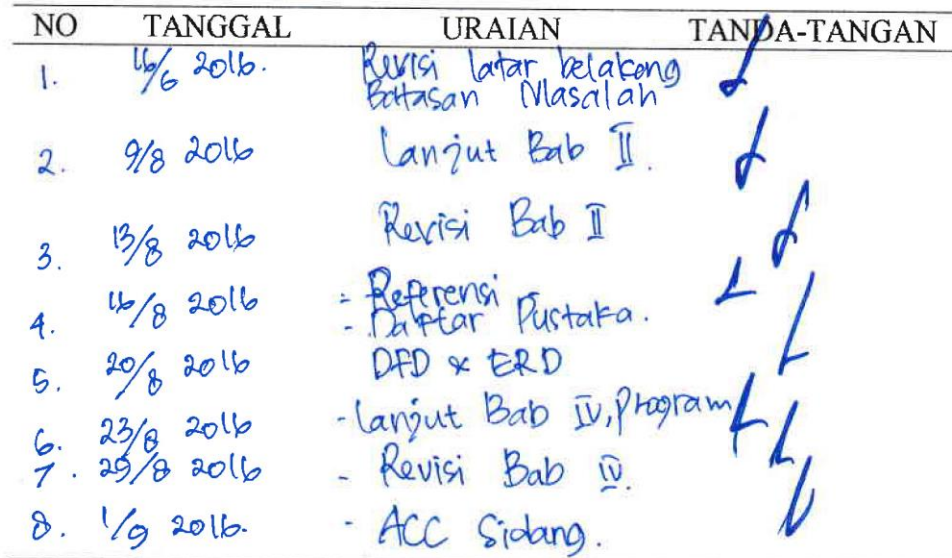 NO TANGGAL URAIAN TANDA-TANGAN
1. 16/6 2016. Revisi latar belakong
Battasan Masalah
2. 9/8 2016 Lanjut Bab II.
3. 13/8 2016 Revisi Bab II
4. 16/8 2016 - Referensi
- Daftar Pustaka.
5. 20/8 2016 DFD & ERD
6. 23/8 2016 - Lanjut Bab IV, Program
7. 29/8 2016 - Revisi Bab IV.
8. 1/9 2016. - ACC Sidang.